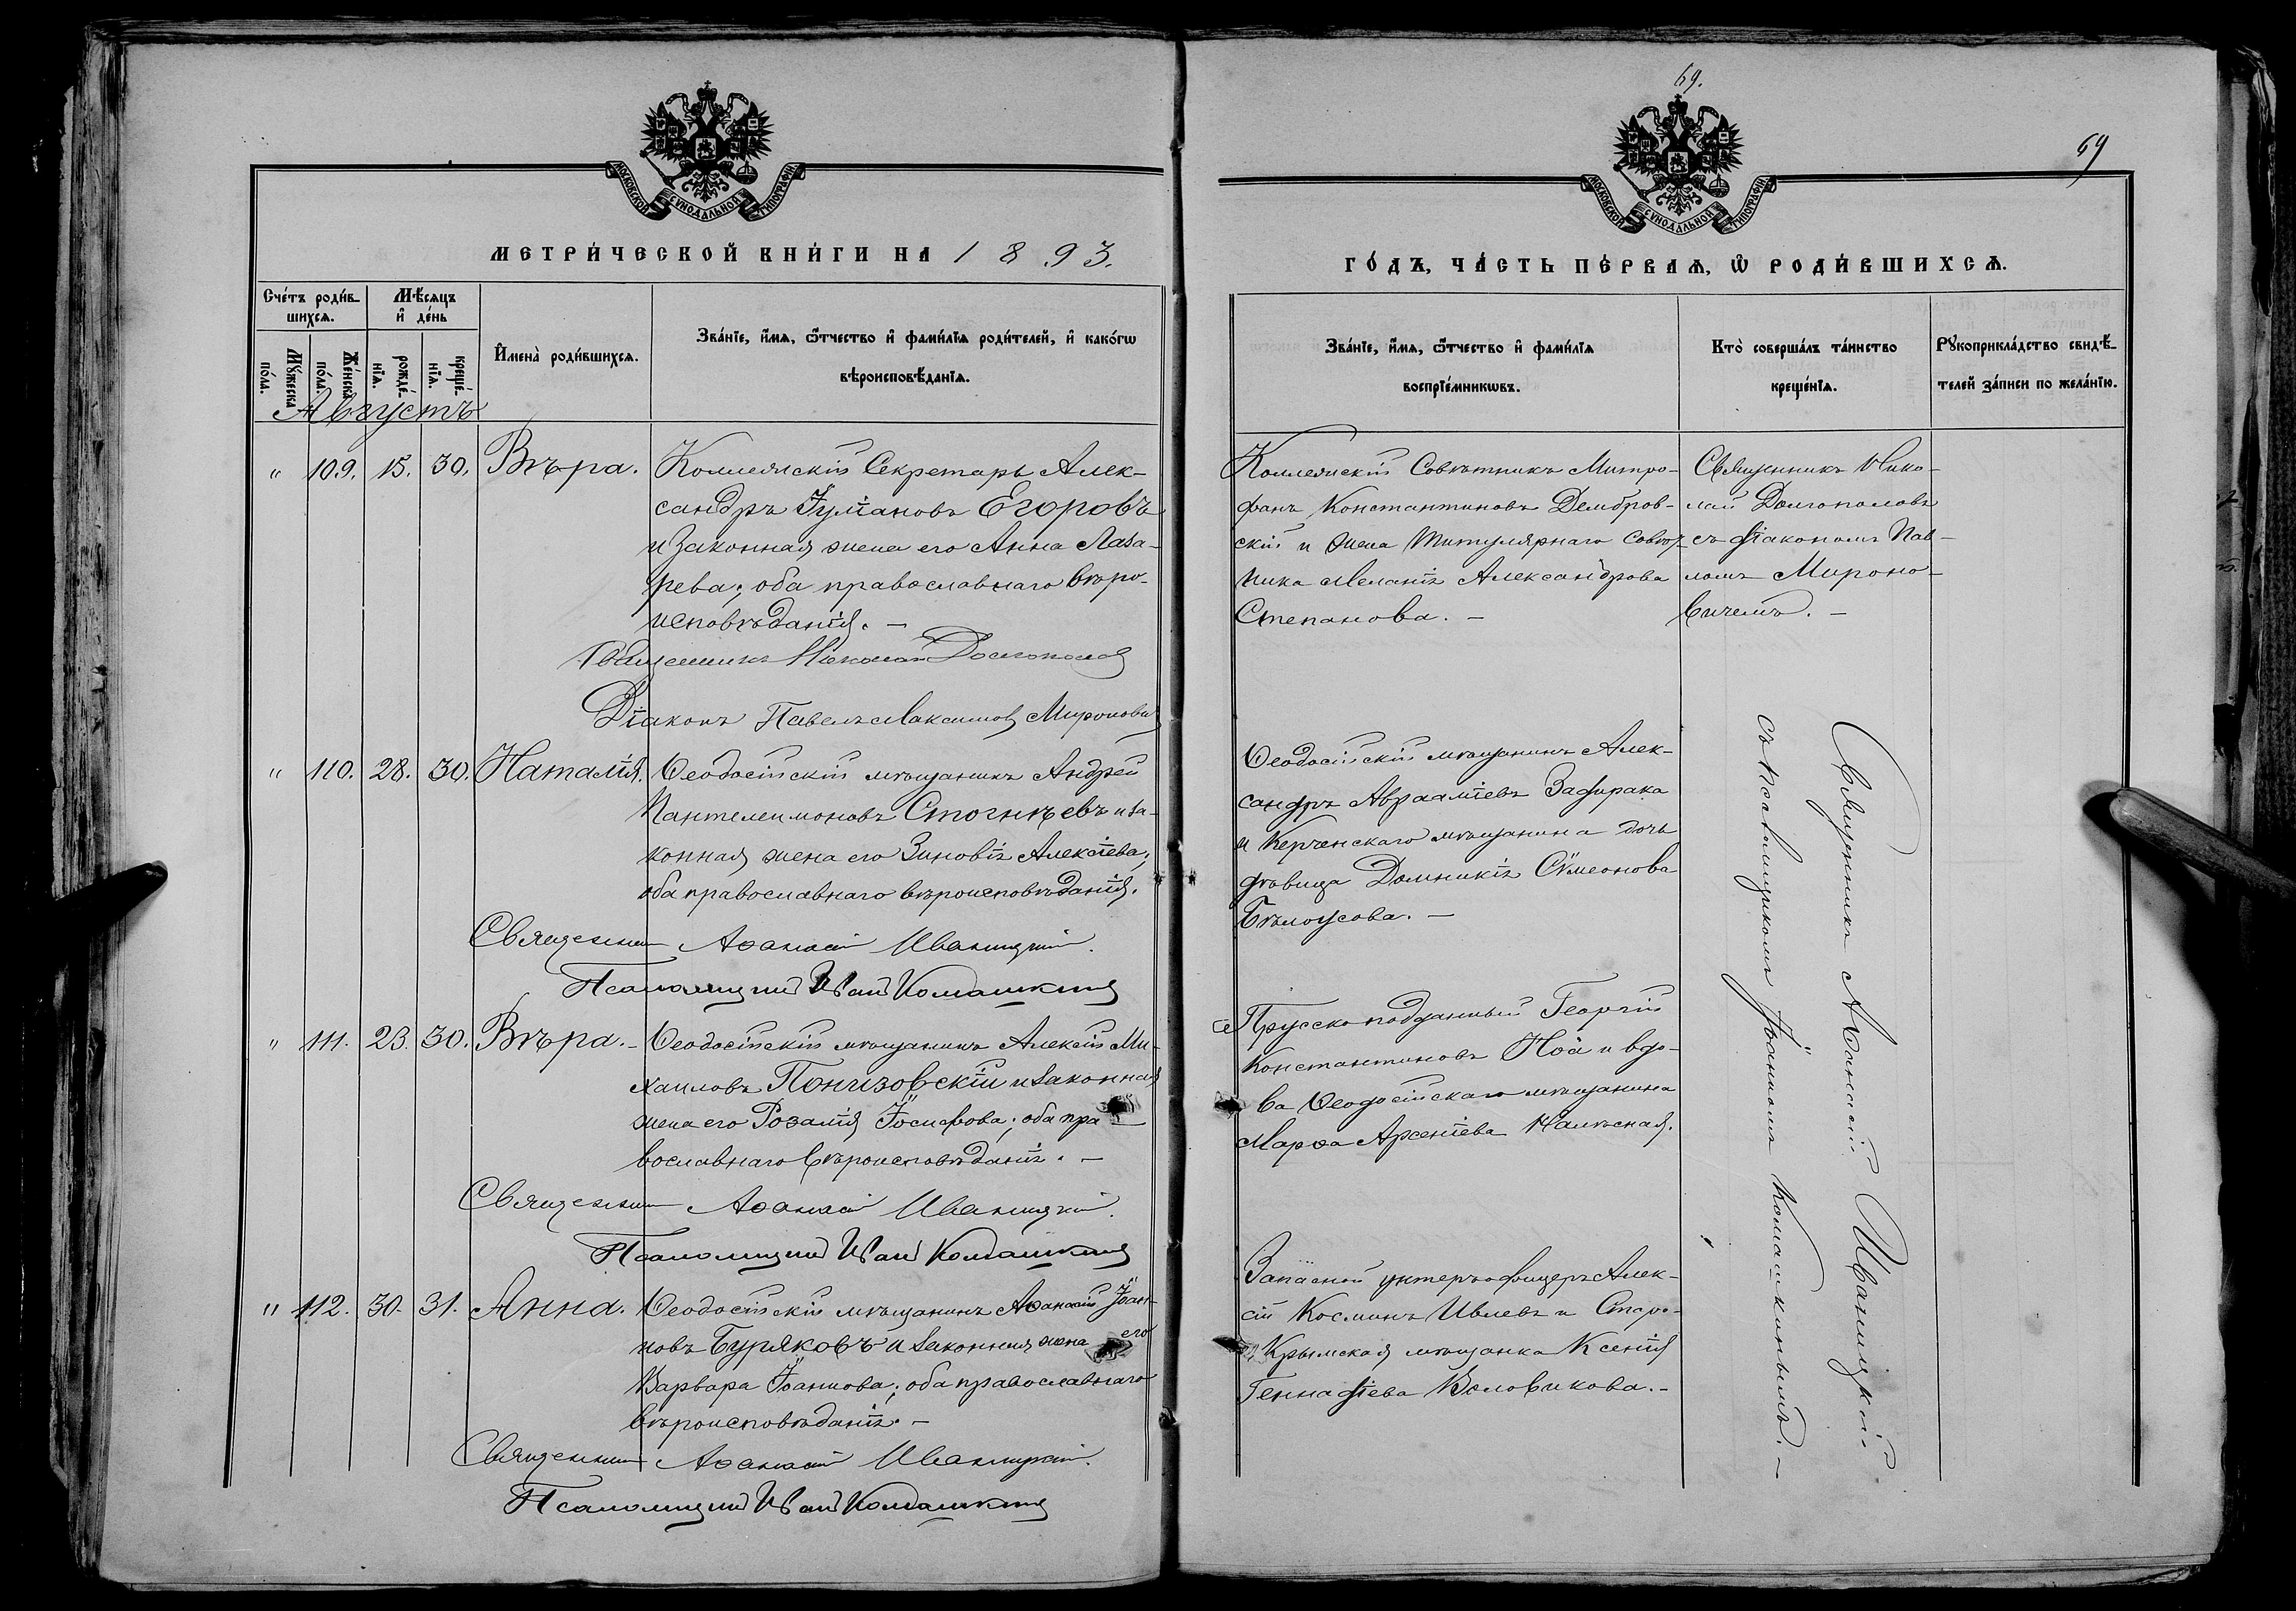 МОСКОВСКОЙ СУНОДАЛЬНОЙ ТИПОГРАФІИ
МЕТРИ́ЧЕСКОЙ КНИ́ГИ НА 1893.
Сче́тъ роди́в-
шихсѧ.
Мѣ́сѧцъ
и҆ де́нь
Мꙋ́жеска
по́ла.
Же́нска
по́ла.
рожде́-
нїѧ.
креще́-
нїѧ.
И҆мена̀ роди́вшихсѧ.
Зва́нїе, и҆́мѧ, ѻ҆́тчество и҆ фами́лїѧ роди́телей, и҆ како́гѡ
вѣроисповѣ́данїѧ.
Августъ
" 109. 15. 30. Вѣра. Коллежскій Секретарь Алек-
сандръ Іуліановъ Егоровъ
и законная жена его Анна Лаза-
рева; оба православнаго вѣро-
исповѣданія. —
Священникъ Николай Долгополов
Діаконъ Павелъ Максимов Миронович
" 110. 28. 30. Наталія. Ѳеодосійскій мѣщанинъ Андрей
Пантелеимоновъ Стогнѣевъ и за-
конная жена его Зиновія Алексіева;
оба православнаго вѣроисповѣданія.
Священник Аѳанасій Иваницкій.
Псаломщик Иван Комашкин
" 111. 23. 30. Вѣра. - Ѳеодосійскій мѣщанинъ Алексій Ми-
хаиловъ Понизовскій и законная
жена его Розалія Іосифова; оба пра-
вославнаго вѣроисповѣданія. —
Священник Аѳанасій Иваницкій.
Псаломщик Иван Комашкин
" 112. 30. 31. Анна. Ѳеодосійскій мѣщанинъ Аѳанасій Іоан-
новъ Буряковъ и законная жена его
Варвара Іоаннова; оба православнаго
вѣроисповѣданія. —
Священник Аѳанасій Иваницкій.
Псаломщик Иван Комашкин
69.
69
МОСКОВСКОЙ СУНОДАЛЬНОЙ ТИПОГРАФІИ
ГО́ДЪ, ЧА́СТЬ ПЕ́РВАѦ, Ѡ҆ РОДИ́ВШИХСѦ.
Зва́нїе, и҆́мѧ, ѻ҆́тчество и҆ фами́лїѧ
воспрїе́мникѡвъ.
Кто̀ соверша́лъ та́инство
креще́нїѧ.
Рꙋкоприкла́дство свидѣ́-
телей за́писи по жела́нїю.
Коллежскій Совѣтникъ Митро-
фанъ Константиновъ Домбров-
скій и жена Титулярнаго Совѣт-
ника Меланія Александрова
Степанова. —
Священникъ Нико-
лай Долгополовъ
съ діакономъ Пав-
ломъ Мироно-
вичемъ. —
Ѳеодосійскій мѣщанинъ Алек-
сандръ Авраамiевъ Задирака
и Керченскаго мѣщанина дочь
дѣвица Домникія Сѵмеонова
Бѣлоусова. —
Прусско-подданный Георгій
Константиновъ Ноа и вдо-
ва Ѳеодосійскаго мѣщанина
Марѳа Арсеніева Калѣсная.
Запасной унтеръ-офицеръ Алек-
сій Косминъ Ивлевъ и Старо-
Крымская мѣщанка Ксенія
Геннадіева Воловикова. -
Священникъ Аѳанасій Иваницкій
съ псаломщикомъ Іоанномъ Комашкинымъ. —